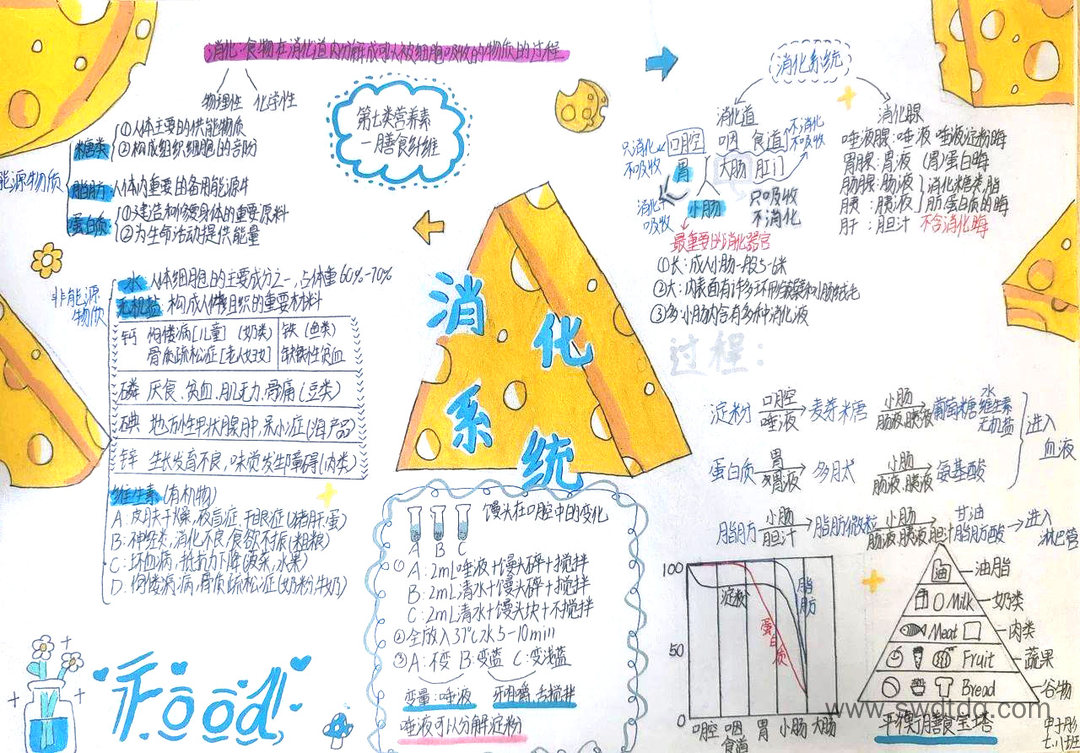 消化:食物在消化道内分解成可以被细胞吸收的物质的过程
物理性 化学性
第七类营养素
—膳食纤维
能源物质
糖类
①人体主要的供能物质
②构成组织细胞的部分
脂肪:人体内重要的备用能源
蛋白质:
①建造和修复身体的重要原料
②为生命活动提供能量
非能源物质
水:人体细胞的主要成分之一,占体重60%-70%
无机盐:构成人体组织的重要材料
钙 佝偻病[儿童] (奶类)
骨质疏松症[老人妇女]
铁(鱼类)
缺铁性贫血
磷 厌食、贫血、肌无力、骨痛(豆类)
碘 地方性甲状腺肿、呆小症(海产品)
锌 生长发育不良,味觉发生障碍(肉类)
维生素(有机物)
A:皮肤干燥、夜盲症、干眼症(猪肝、蛋)
B:神经炎、消化不良、食欲不振(粗粮)
C:坏血病、抵抗力下降(蔬菜、水果)
D:佝偻病、骨质疏松症(奶粉、牛奶)
Food
消化系统
消化系统
消化道
口腔 咽 食道
不消化
不吸收
只消化
不吸收
胃 大肠 肛门
消化
吸收
小肠
只吸收
不消化
最重要的消化器官
①长:成人小肠一般5-6米
②大:内表面有许多环形皱襞和小肠绒毛
③多:小肠内含有多种消化液
消化腺
唾液腺:唾液 唾液淀粉酶
胃腺:胃液 (胃)蛋白酶
肠腺:肠液
胰:胰液
消化糖类脂
肪蛋白质的酶
肝:胆汁 不含消化酶
过程:
淀粉 口腔 唾液 麦芽糖 小肠 肠液、胰液 葡萄糖
水
维生素
无机盐
进入
血液
蛋白质 胃 胃液 多肽 小肠 肠液、胰液 氨基酸
脂肪 小肠 胆汁 脂肪微粒 小肠 肠液、胰液、胆汁 甘油 脂肪酸 进入
淋巴管
馒头在口腔中的变化
A B C
①A:2mL唾液+馒头碎+搅拌
B:2mL清水+馒头碎+搅拌
C:2mL清水+馒头块+不搅拌
②全放入37℃水5-10min
③A:不变 B:变蓝 C:变浅蓝
变量:唾液 牙咀嚼,舌搅拌
唾液可以分解淀粉
100
50
0
淀粉
蛋白质
脂肪
口腔 咽 胃 小肠 大肠
食道
油 油脂
Milk 奶类
Meat 肉类
Fruit 蔬果
Bread 谷物
平衡膳食宝塔
www.swdtdq.com